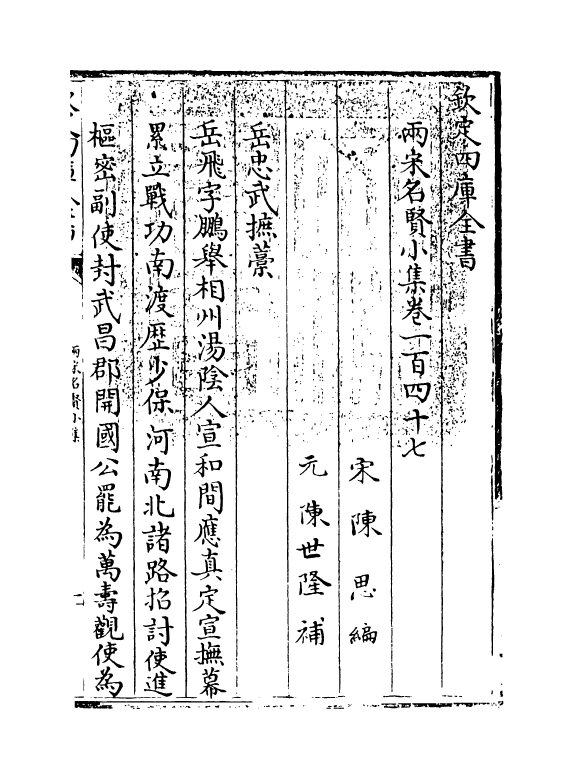 欽定四庫全書
兩宋名賢小集卷一百四十七
宋 陳思 編
元 陳世隆 補
岳忠武摭藁
岳飛字鵬舉相州湯陰人宣和間應真定宣撫幕
累立戰功南渡歷少保河南北諸路招討使進
樞密副使封武昌郡開國公罷為萬壽觀使為
兩宋名賢小集